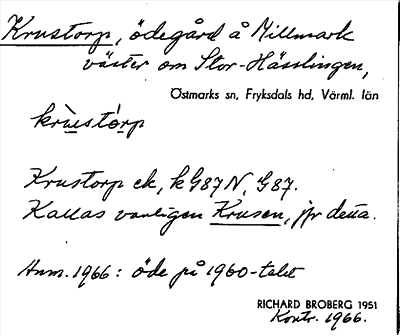 Krustorp, ödegård å Millmark
väster om Stor-Hässlingen,
Östmarks sn, Fryksdals hd, Värml. län
krùstórp
Krustorp ek, k G87 N, G87.
Kallas vanligen Krusen, jfr detta.
Anm. 1966: öde på 1960-talet
RICHARD BROBERG 1951
Kontr. 1966.